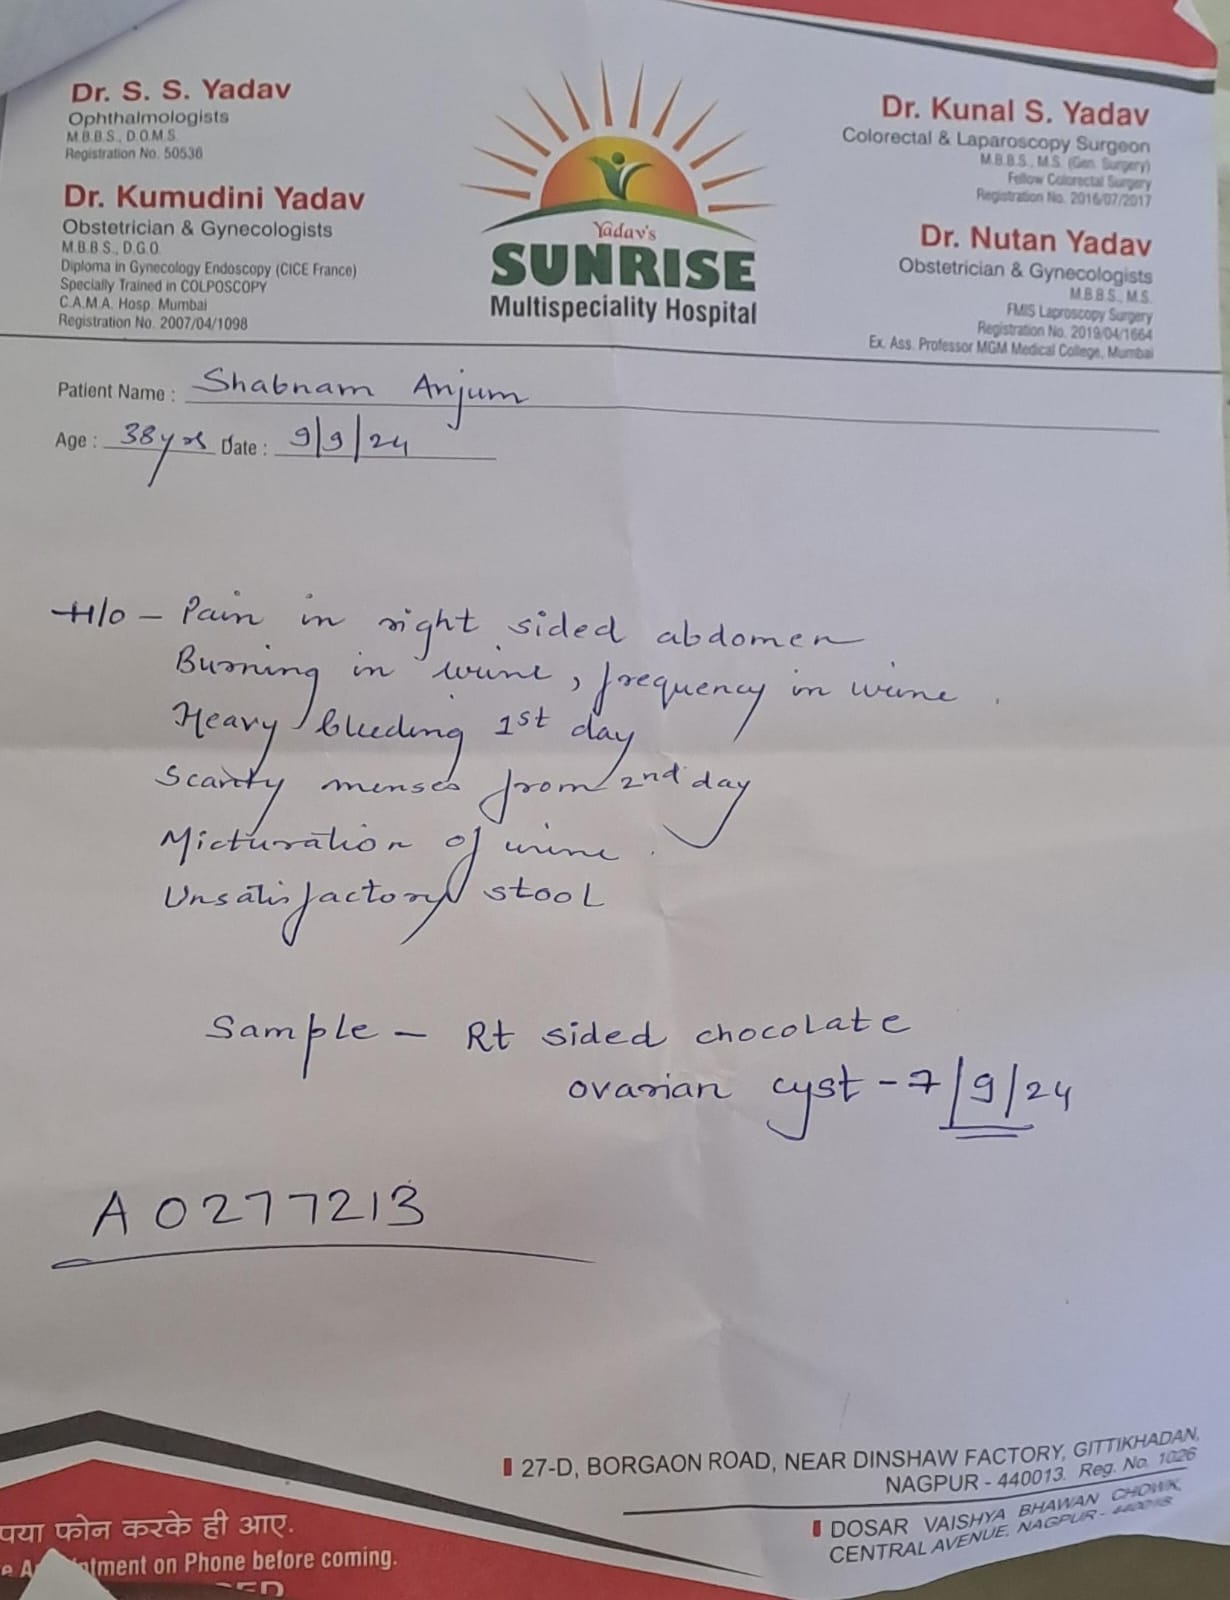 Dr. S. S. Yadav
Ophthalmologists
M.B.B.S., D.O.M.S.
Registration No. 50536
Dr. Kumudini Yadav
Obstetrician & Gynecologists
M.B.B.S., D.G.O.
Diploma in Gynecology Endoscopy (CICE France)
Specially Trained in COLPOSCOPY
C.A.M.A. Hosp. Mumbai
Registration No. 2007/04/1098
Yadav's
SUNRISE
Multispeciality Hospital
Dr. Kunal S. Yadav
Colorectal & Laparoscopy Surgeon
M.B.B.S., M.S. (Gen. Surgery)
Fellow Colorectal Surgery
Registration No. 2016/07/2017
Dr. Nutan Yadav
Obstetrician & Gynecologists
M.B.B.S., M.S.
FMIS Laproscopy Surgery
Registration No. 2019/04/1664
Ex. Ass. Professor MGM Medical College, Mumbai
Patient Name : Shabnam Anjum
Age : 38yrs Date : 9/9/24
H/o - Pain in right sided abdomen
Burning in urine, frequency in urine.
Heavy bleeding 1st day
Scanty menses from 2nd day
Micturation of urine.
Unsatisfactory stool
Sample - Rt sided chocolate
ovarian cyst - 7/9/24
A0277213
27-D, BORGAON ROAD, NEAR DINSHAW FACTORY, GITTIKHADAN,
NAGPUR - 440013. Reg. No. 1026
DOSAR VAISHYA BHAWAN CHOWK,
CENTRAL AVENUE, NAGPUR -
पया फोन करके ही आए.
ntment on Phone before coming.